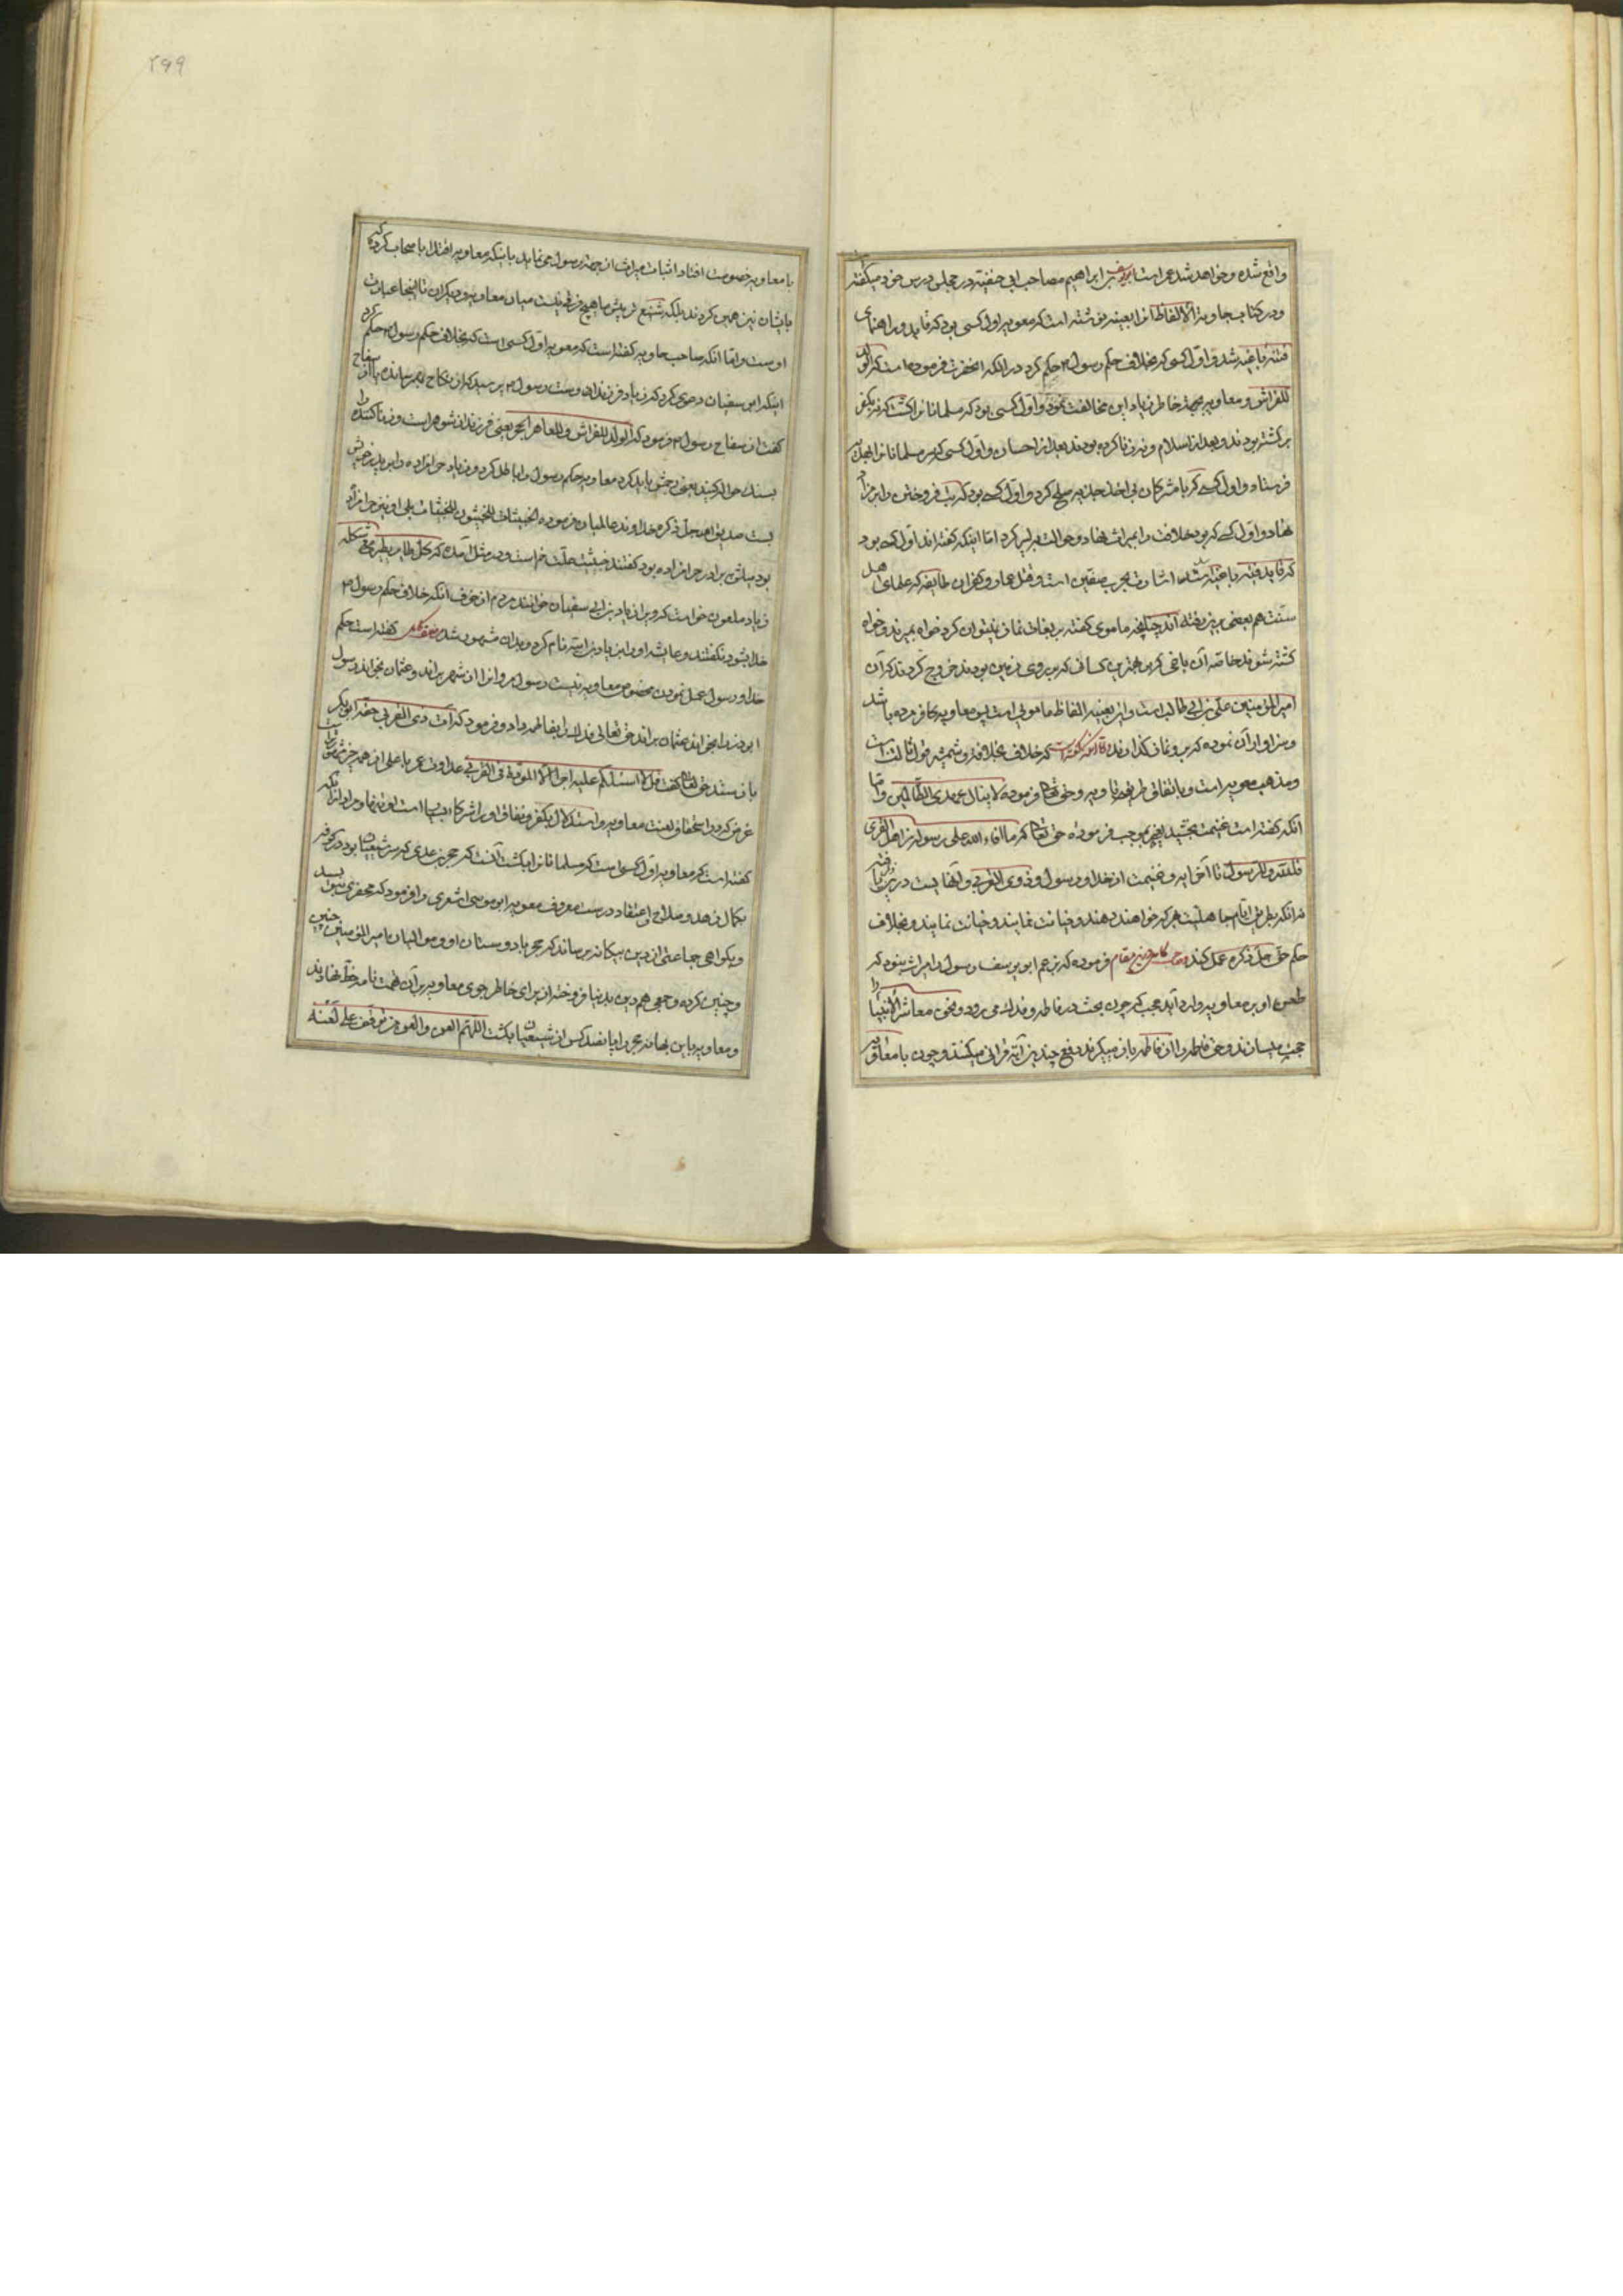 واقع شده و خواهد شد عمر است ابو یوسف بن ابراهیم مصاحب ابی حنفیه در مجلس درس خود میگفته
و در کتاب حاویه الالفاظ انرا بعینه نوشته است که معویه اول کسی بود که قاید و راهنمای
فئه باغیه شد و اول کسی که بخلاف حکم رسول حکم کرد در آنکه انحضرت فرموده است که الولد
للفراش و معاویه بجهة خاطر زیاد این مخالفت نمود و اول کسی بود که مسلمانانرا کشت که نه بکفر
برگشته بودند و بعد از اسلام و نه زنا کرده بودند بعد از احسان و اول کسی که سر مسلمانانرا بهدیه
فرستاد و اول کسی که با مشرکان بی اخذ جزیه صلح کرد و اول کسی بود که بت فروختن را بر مزاد
نهاد و اول کسی که بود خلافت را میراث نهاد و حوالت به پسر کرد اما اینکه گفته اند اول کسی بود
که قاید فئه باغیه شد اشارت بحرب صفین است و قتل عمار و کفر آن طایفه که علمای اهل
سنت هم بعضی برین رفته اند چنانچه ماموی گفته بر بغات نماز نتوان کرد خواه بمیرند و خواه
کشته شوند خاصه آن باغی که بر بهترین کسانی که بر روی زمین بودند خروج کردند که آن
امیر المؤمنین علی بن ابی طالب است و این بعینه الفاظ ماموی است پس معاویه کافر مرده باشد
و سزاوار آن نبوده که برو نماز گذارند و آنکه گفته است که خلافت بخلافه و شمیه قول ثالث است
و مذهب معویه است و باتفاق طریقه ناویه و حق تعالی فرموده لا ینال عهدی الظالمین و اما
انکه گفته است غنیمت بخشید بغیر موجب فرموده حق تعالی که ما افاء الله علی رسوله من اهل القری
فلله و للرسول تا آخر ایه و غنیمت از خدا و رسول و ذوی القربی و انها یست در زیر
نه انکه بطریق ایام جاهلیت هر که خواهند دهند و خیانت نمایند و خیانت نمایند و بخلاف
حکم حق جل ذکره عمل کنند و صاحب کامل درین مقام فرموده که بزعم ابو یوسف رسول را میراث نبود که
طعن او بر معاویه وارد آید عجب که چون بحث در فاطمه و فدک می رود و نحن معاشر الانبیا را
حجت میسازند و حق فاطمه را از فاطمه باز میگیرند و دفع چندین آیة قرانی میکنند و چون با معاویه
با معاویه خصومت افتاد اثبات میراث از جهة رسول می نماید با اینکه معاویه اقتدا باصحاب کرده که
بایشان نیز همین کردند بلکه شنیع تر پیش ما هیچ فرقی نیست میان معاویه و دیگران تا اینجا عبارت
اوست و اما انکه صاحب حاویه گفته است که معویه اول کسی است که بخلاف حکم رسول حکم کرد
اینکه ابو سفیان دعوی کرد که زیاد فرزند اوست رسول پرسید که از نکاح بهم رسانده یا از سفاح
گفت از سفاح رسول فرمود که الولد للفراش و للعاهر الحجر یعنی فرزند از شوهر است و زنا کننده را
بسنگ حواله کنید یعنی رجمش باید کرد معاویه حکم رسول را باطل کرد و زیاد حرامزاده را بر پدر خویش
بست صدیق الله جل ذکره خداوند عالمیان فرموده الخبیثات للخبیثون للخبیثات بلی او نیز حرامزاد
بود میلش برادر حرامزاده بود گفتند خبیثیت علت ضم است و در مثل آمده که کل طایر یطیر مع شکله
زیاد ملعون خواست که ویرا زیاد بن ابی سفیان خوانند مردم از خوف انکه خلاف حکم رسول
خدا بشود نگفتند و عایشه او را بن زیاد بن ابیه نام کرد و بدان مشهور شد گفته است حکم
خدا و رسول عمل نمودن مخصوص معاویه نیست رسول مروانرا از شهر براند و عثمان بخواند رسول
ابوذر را بخواند عثمان براند حق تعالی فدک را بفاطمه داد و فرمود که ات ذی القربی حقه ابو بکر
باز ستد حق تعالی گفت قل لا اسئلکم علیه اجرا الا المودة فی القربی عداوت عمر با علی از همه چیز
غرض که در استحقاق لعنت معاویه و استدلال بکفر و نفاق او را شرکاء بسیار است
گفته است که معاویه اول کسی است که مسلمانانرا بکشت آنست که حجر بن عدی که سر شیعیان بود در کوفه
بکمال زهد و صلاح و اعتقاد درست معروف معویه ابو موسی اشعری را فرمود که محضری بنویسد
و بگواهی جماعتی از دین بیگانه برساند که حجر با دوستان او و موالیان با امیر المؤمنین چنین
و چنین کرده و جمعی هم دین بدنیا فروخته از برای خاطر جوی معاویه بر آن تهمت نامه خط نهادند
و معاویه باین بهانه حجر را با نفد کس از شیعیان بکشت اللهم العن و العن من توقف علی لعنه
۲۹۹